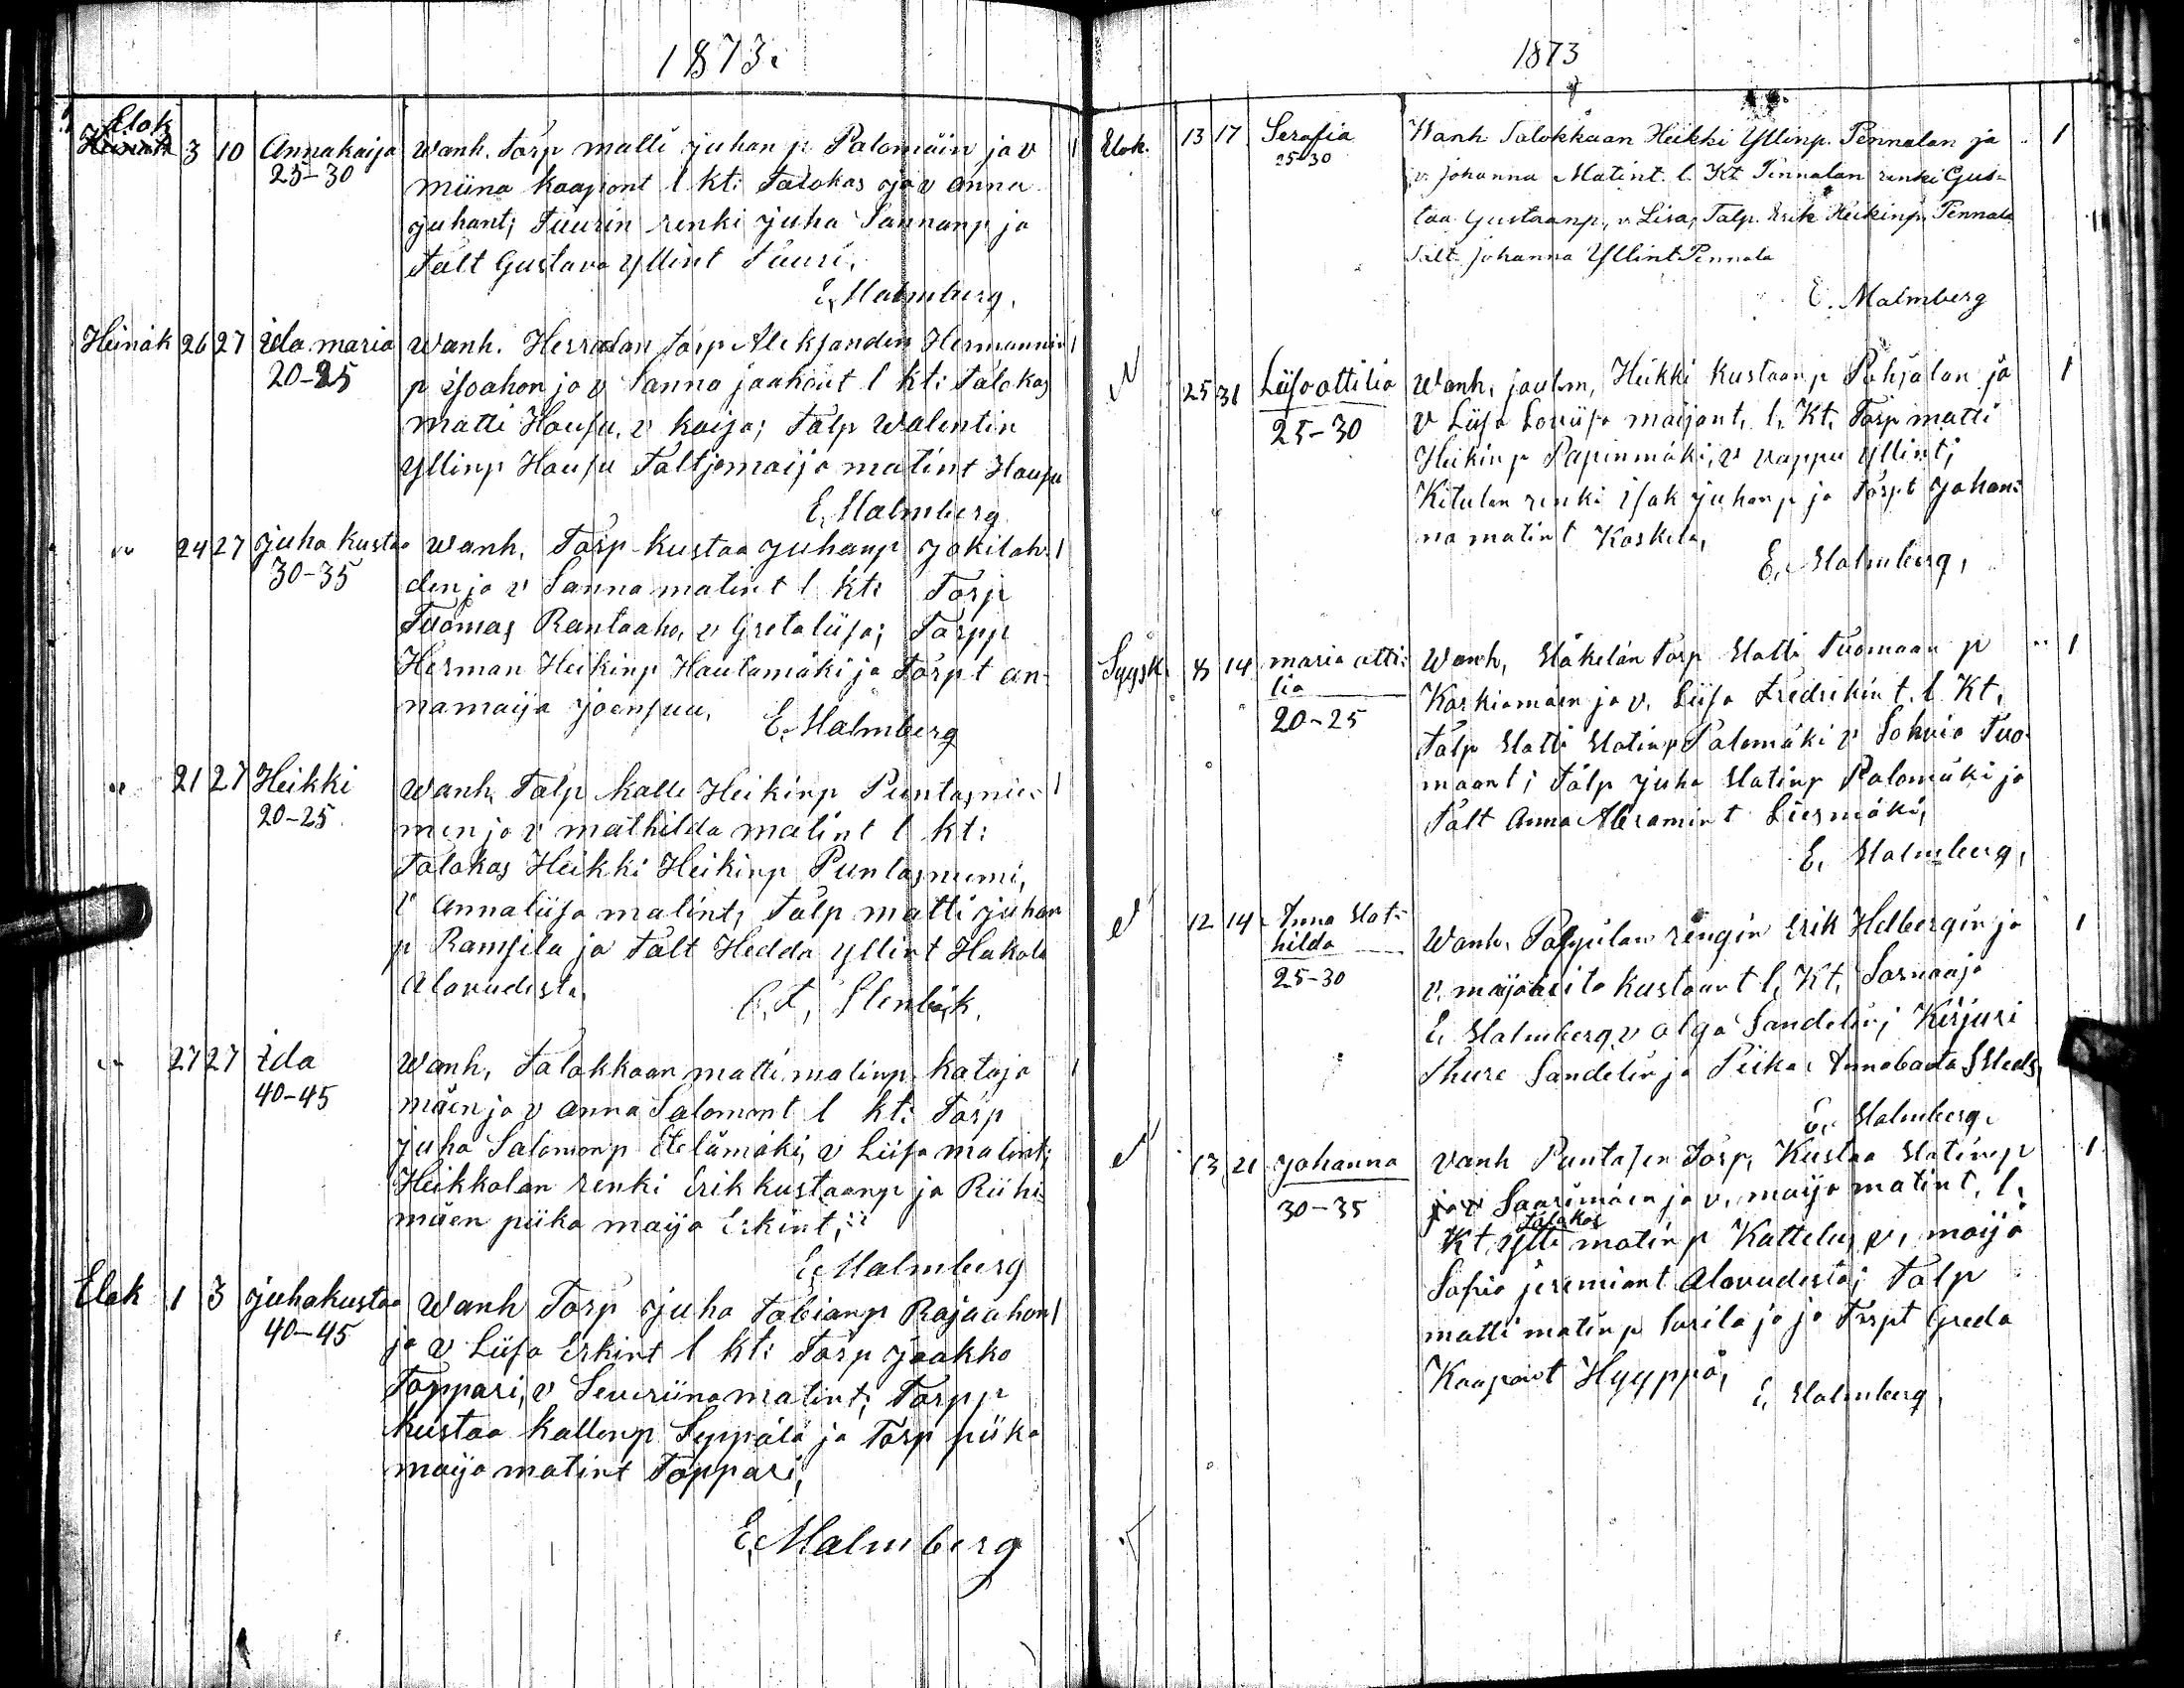 1873.
Elok
Heinäk 3 10 Annakaija Wanh. Torp matti juhan p Palomäin ja v 1
25-30 miina kaapont l kt: Talokas ja v anna
juhant; Tuurin renki juha Sannanp ja
Talt Gustava Yllint Tuuri,
E, Malmberg,
Heinäk 26 27 ida maria Wanh. Herralan torp Aleksanden Hermannin 1
20-25 p isoahon ja v Sanna jaakont l kt: Talokas
matti Haufu, v kaija; Talp Walentin
Yllinp Haufu Talt maija matint Haufu
E, Malmberg
" 24 27 juha kustaa Wanh, Torp kustaa juhanp Jokilah- 1
30-35 den ja v Sanna matint l kt: Torp
Tuomas Rantaaho, v Gretaliisa; Torpp
Herman Heikinp Hautamäki ja Torpt an-
namaija joensuu, E, Malmberg
" 21 27 Heikki Wanh, Talp kalle Heikinp Puntasnie- 1
20-25 men ja v mathilda matint l kt:
Talokas Heikki Heikinp Puntasniemi,
v Annaliisa matint, Talp matti juhan
p Ramsila ja Talt Hedda Yllint Hakola
Alavudesta, Stenbäk.
" 27 27 ida Wanh, Talokkaan matti matinp kataja 1
40-45 mäen ja v anna Salomont l kt: Torp
juha Salomonp Etelämäki, v Liisa matint;
Heikkolan renki Erik kustaanp ja Riihi-
mäen piika maija Erkint,
E, Malmberg
Elok 1 3 juhakustaa Wanh Torp juha Tobianp Rajaahon 1
40-45 ja v Liisa Erkint l kt: Torp jaakko
Toppari, v Severiina matint; Torpp
kustaa kallenp Seppälä ja Torp piika
maija matint Toppari,
E, Malmberg
1873
Elok. 13 17 Serafia Wanh Talokkaan Heikki Yllinp. Pennalan ja 1
25-30 v. johanna Matint. l. Kt Pennalan renki Gus-
taa Gustaanp, v Lisa, Talp. Erik Heikinp Pennala
Talt Johanna Yllint Pennala
E. Malmberg
" 25 31 Liisa ottilia Wanh, Heikki kustaanp Pohjalan ja 1
25-30 v Liisa Loviisa maijant. l, Kt, Torp matti
Heikinp Papinmäki, v vappu Yllint;
Kitulan renki isak juhanp ja Torpt johan-
na matint Koskela,
E, Malmberg,
Syysk. 8 14 maria otti- Wanh, Mäkelän Torp Matti Tuomaan p " 1
lia Koskiamäen ja v, Liisa Fredrikint. l Kt,
20-25 Talp Matti Matinp Palomäki v Sohvia Tuo-
maant; Talp juha Matinp Palomäki ja
Talt Anna Abramint Liesmäki,
E, Malmberg,
" 12 14 Anna Mat- Wanh, rengin Erik Helbergin ja 1
hilda v, maija kustaant l, Kt, Saarnaaja
25-30 E, Malmberg, v olga Sandelin; Kirjuri
Thure Sandelin ja Piika,
E, Malmberg,
" 13 21 Johanna Vanh Puntasen Torp, Kustaa Matinp 1
30-35 ja v Saarimäen ja v, maija matint, l,
Talokas
Kt, Ylli matinp Kattelus, v, maija
Sofia jeremiant Alavudesta; Talp
matti matinp ja ja Torpt Greda
Kaapont Hyyppä,
E, Malmberg,